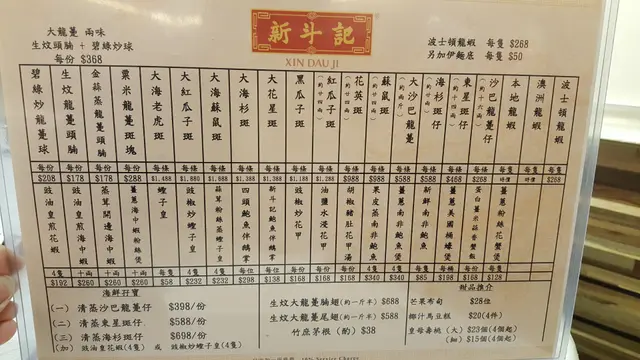 大龍躉 兩味
生炆頭腩 + 碧綠炒球
每份 $368
新斗記
XIN DAU JI
波士頓龍蝦 每隻 $268
另加伊麵底 每隻 $50
碧綠炒龍躉球 每份 $208
生炆龍躉頭腩 每份 $178
金蒜蒸龍躉頭腩 每份 $178
粟米龍躉斑塊 每份 $288
大海老虎斑 每條 $1,488
大紅瓜子斑 每條 $1,880
大海蘇鼠斑 每條 $1,688
大海杉斑 每條 $1,488
大花星斑 每條 $1,388
黑瓜子斑 每條 $1,188
紅瓜子斑 每條 $1,288
花英斑 每條 $988
蘇鼠斑 每條 $988
大沙巴龍躉 每條 $588
海杉斑 每條 $588
東星斑 每條 $468
沙巴龍躉仔 每條 $288
本地龍蝦 每隻 時價
澳洲龍蝦 每隻 時價
波士頓龍蝦 每隻 $268
豉油皇煎花蝦 4隻 $192
豉油皇煎海中蝦 十両 $260
蒜茸開邊海中蝦 十両 $260
薑蔥海中蝦粉絲煲 十両 $260
蟶子皇 每隻 $58
豉椒炒蟶子皇 4隻 $232
蒜茸粉絲蒸蟶子皇 4隻 $232
四頭鮑魚伴鵝掌 每位 $298
新斗記鮑魚伴鵝掌 每位 $138
豉椒炒花甲 每份 $168
油鹽水浸花甲 每份 $168
胡椒豬肚花甲湯 每份 $168
果皮蒸南非鮑魚 4隻 $340
薑蔥南非鮑魚煲 4隻 $340
新鮮南非鮑魚 每隻 $85
薑蔥美國桶蠔煲 每桶 $198
每份 $168
薑蔥粉絲花蟹煲 每份 $128
海鮮孖寶
(一) 清蒸沙巴龍躉仔 $398/份
(二) 清蒸東星斑仔 $588/份
(三) 清蒸海杉斑仔 $698/份
(加) 豉油皇花蝦(4隻) 或 豉椒炒蟶子皇(4隻)
生炆大龍躉腩翅(約一斤半) $688
生炆大龍躉尾翅(約一斤半) $588
竹庶茅根 (酌) $38
甜品推介
芒果布甸 $28位
椰汁馬豆糕 $20(4件)
皇母壽桃 (大) $23個(4個起)
(細) $15個(4個起)